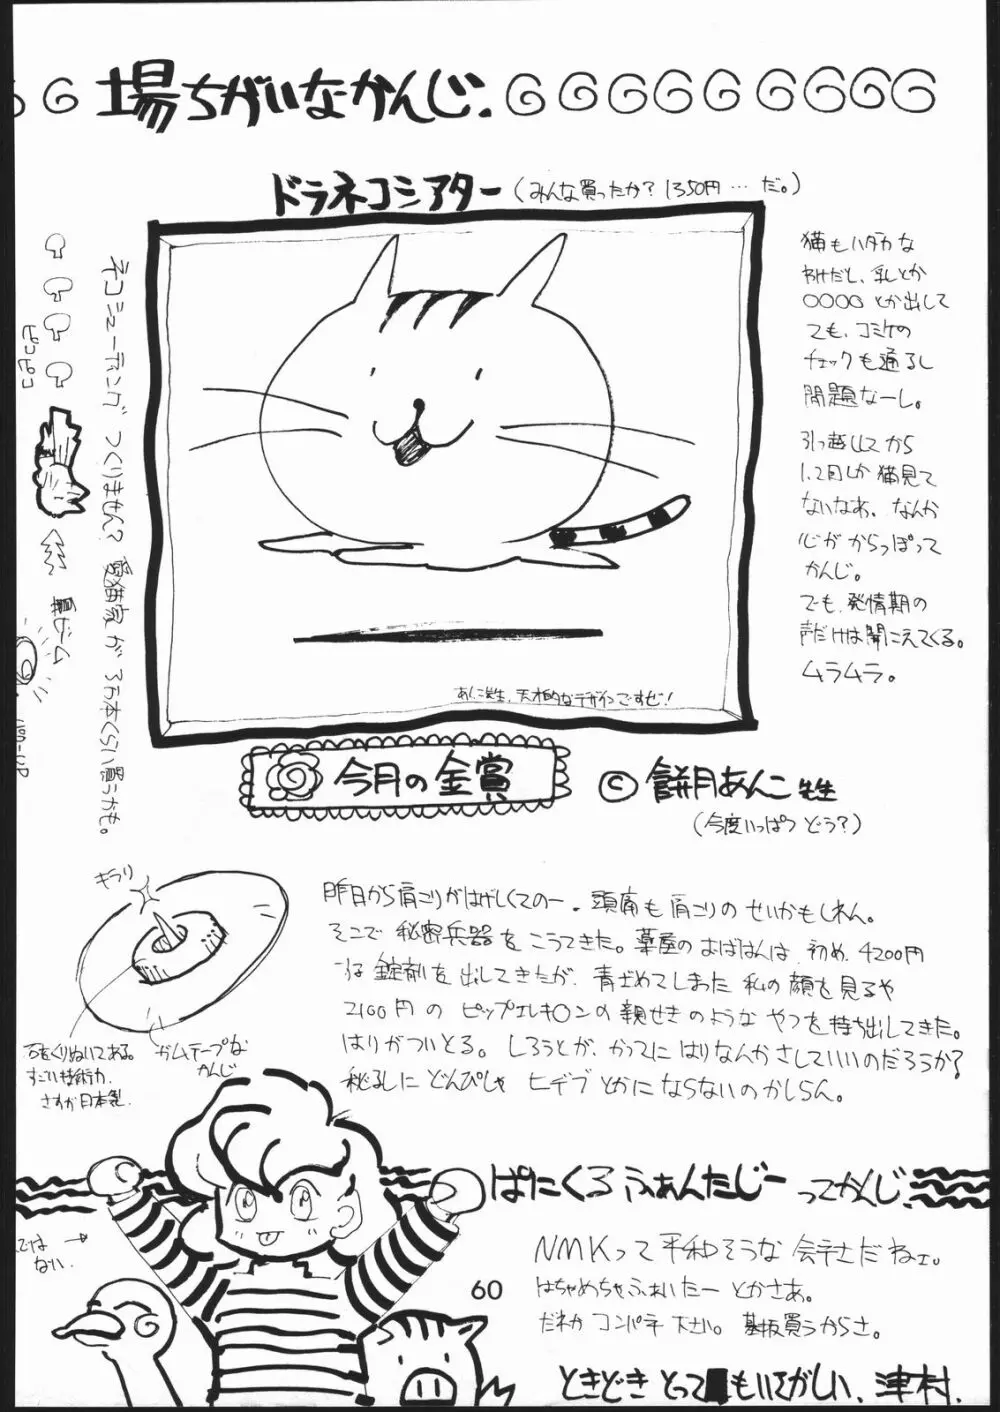 場ちがいなかんじ.
ドラネコシアター(みんな買ったか?1350円…だ。)
猫もハダカな
わけだし、乳とか
○○○○とか出して
ても、コミケの
チェックも通るし
問題なーし。
引っ越してから
1、2回しか猫見て
ないなあ、なんか
心がからっぽって
かんじ。
でも、発情期の
声だけは聞こえてくる。
ムラムラ。
ネコシューティングつくりません?愛猫家が3万本くらい買うかも。
ピコピコ
ビーム
あんこ先生、天才的なデザインですぜ!
今月の金賞
©餅月あんこ先生
(今度いっぱつどう?)
キラリ
石をくりぬいてある。
すごい技術力.
さすが日本製.
ガムテープな
かんじ
昨日から肩こりがはげしくてのー.頭痛も肩こりのせいかもしれん。
そこで秘密兵器をこうてきた。薬屋のおばはんは、初め、4200円
な錠剤を出してきたが、青ざめてしまった私の顔を見るや
2100円のピップエレキ○ンの親せきのようなやつを持ち出してきた。
はりがついとる。しろうとが、かってにはりなんかさしていいのだろうか?
秘孔にどんぴしゃヒデブとかにならないのかしらん。
ぱにくるふぁんたじーってかんじ.
ではない.
NMKって平和そうな会社だねェ。
はちゃめちゃふぁいたーとかさあ。
だれかコンパチ下さい。基板買うからさ。
60
ときどきとってもいてかしい、津村.